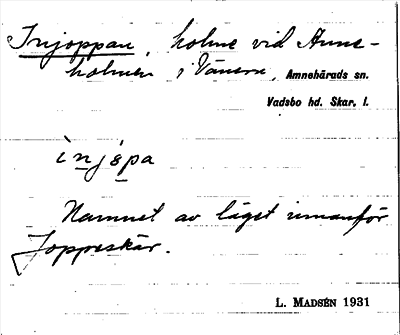 Injoppan, holme vid Amne-
holmen i Vänern, Amnehärads sn.
Vadsbo hd. Skar. l.
ìnjȯpa
Namnet av läget innanför
Joppeskär.
L. MADSÉN 1931